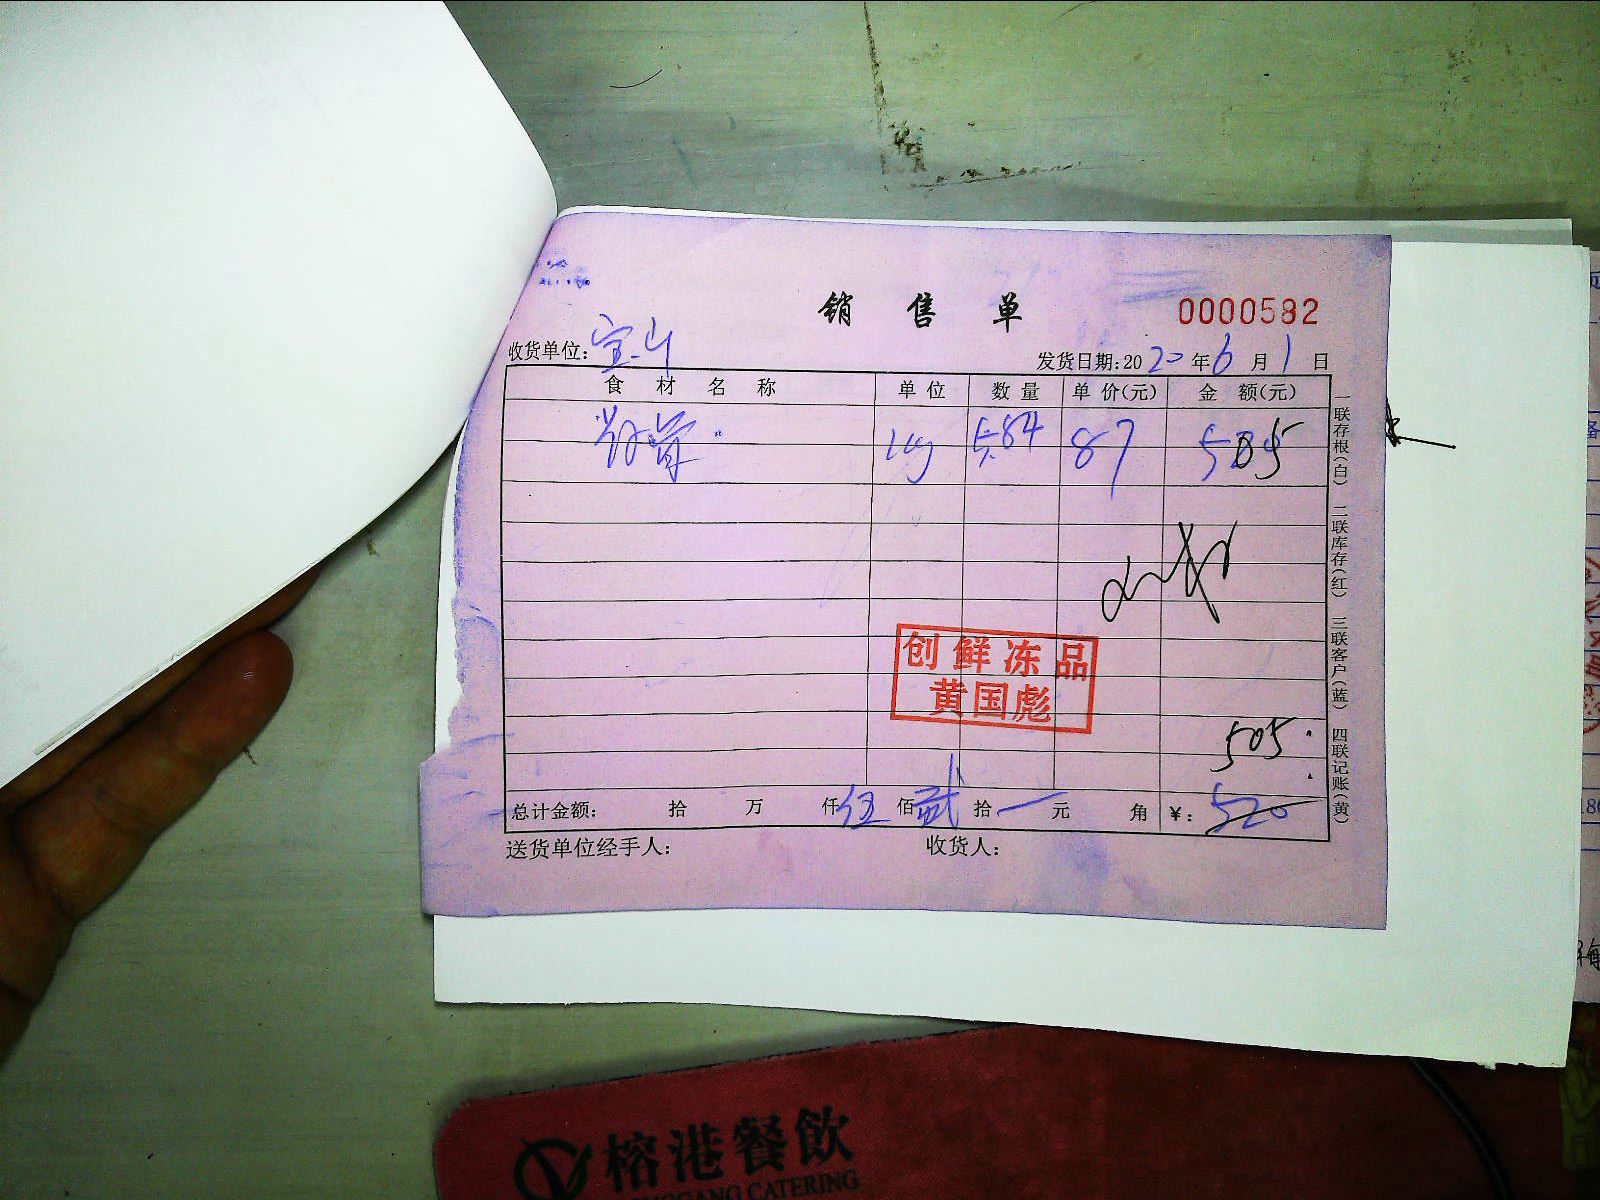 销售单 0000582
收货单位: 宝山 发货日期:2020年6月1日
食材名称 单位 数量 单价(元) 金额(元)
kg 5.84 87 505
创鲜冻品
黄国彪
505
总计金额: 拾 万 仟伍佰贰拾一元 角 ¥: 520
送货单位经手人: 收货人:
一联存根(白) 二联库存(红) 三联客户(蓝) 四联记账(黄)
榕港餐飲
GGANG CATERING